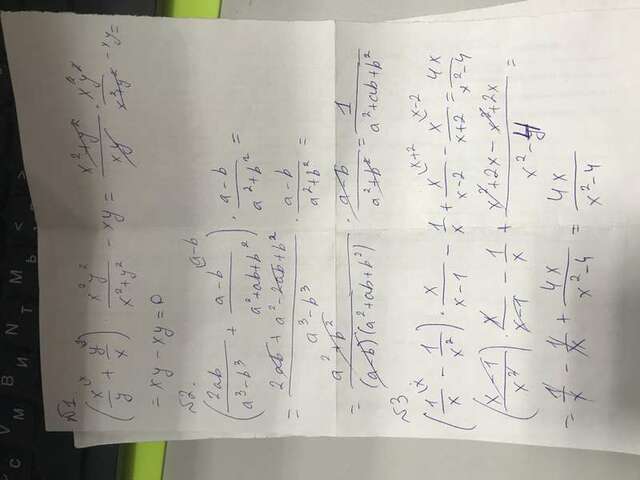 С М В И N Т Ь <
№1.
(x^x/y + y^y/x) · x²y²/(x²+y²) - xy = (x²+y²)/(xy) · x²y²/(x²+y²) - xy =
= xy - xy = 0
№2.
(2ab/(a³-b³) + (a-b)^(a-b)/(a²+ab+b²)) · (a-b)/(a²+b²) =
= (2ab + a² - 2ab + b²)/(a³-b³) · (a-b)/(a²+b²) =
= (a²+b²)/((a-b)(a²+ab+b²)) · (a-b)/(a²+b²) = 1/(a²+ab+b²)
№3
(1^x/x - 1/x²) · x/(x-1) - 1/x + x^(x+2)/(x-2) - x^(x-2)/(x+2) = 4x/(x²-4)
((x-1)/x²) · x/(x-1) - 1/x + (x²+2x-x²+2x)/(x²-4) =
= 1/x - 1/x + 4x/(x²-4) = 4x/(x²-4)